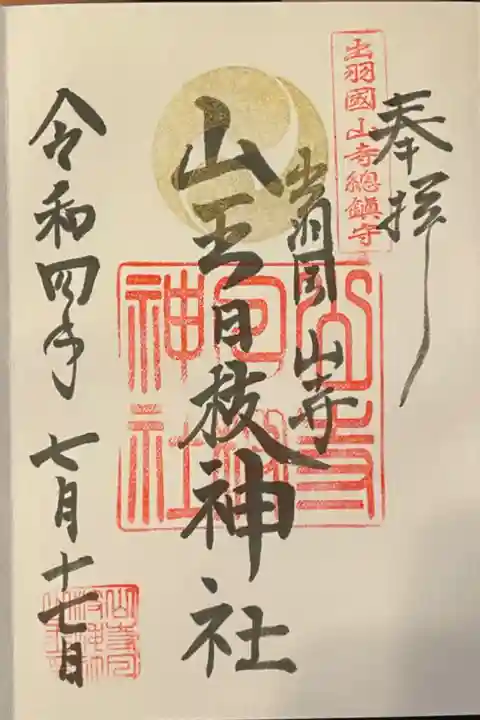 奉拝
出羽國山寺総鎮守
出羽国 山寺
山王日枝神社
山寺日枝神社
令和四年 七月十七日